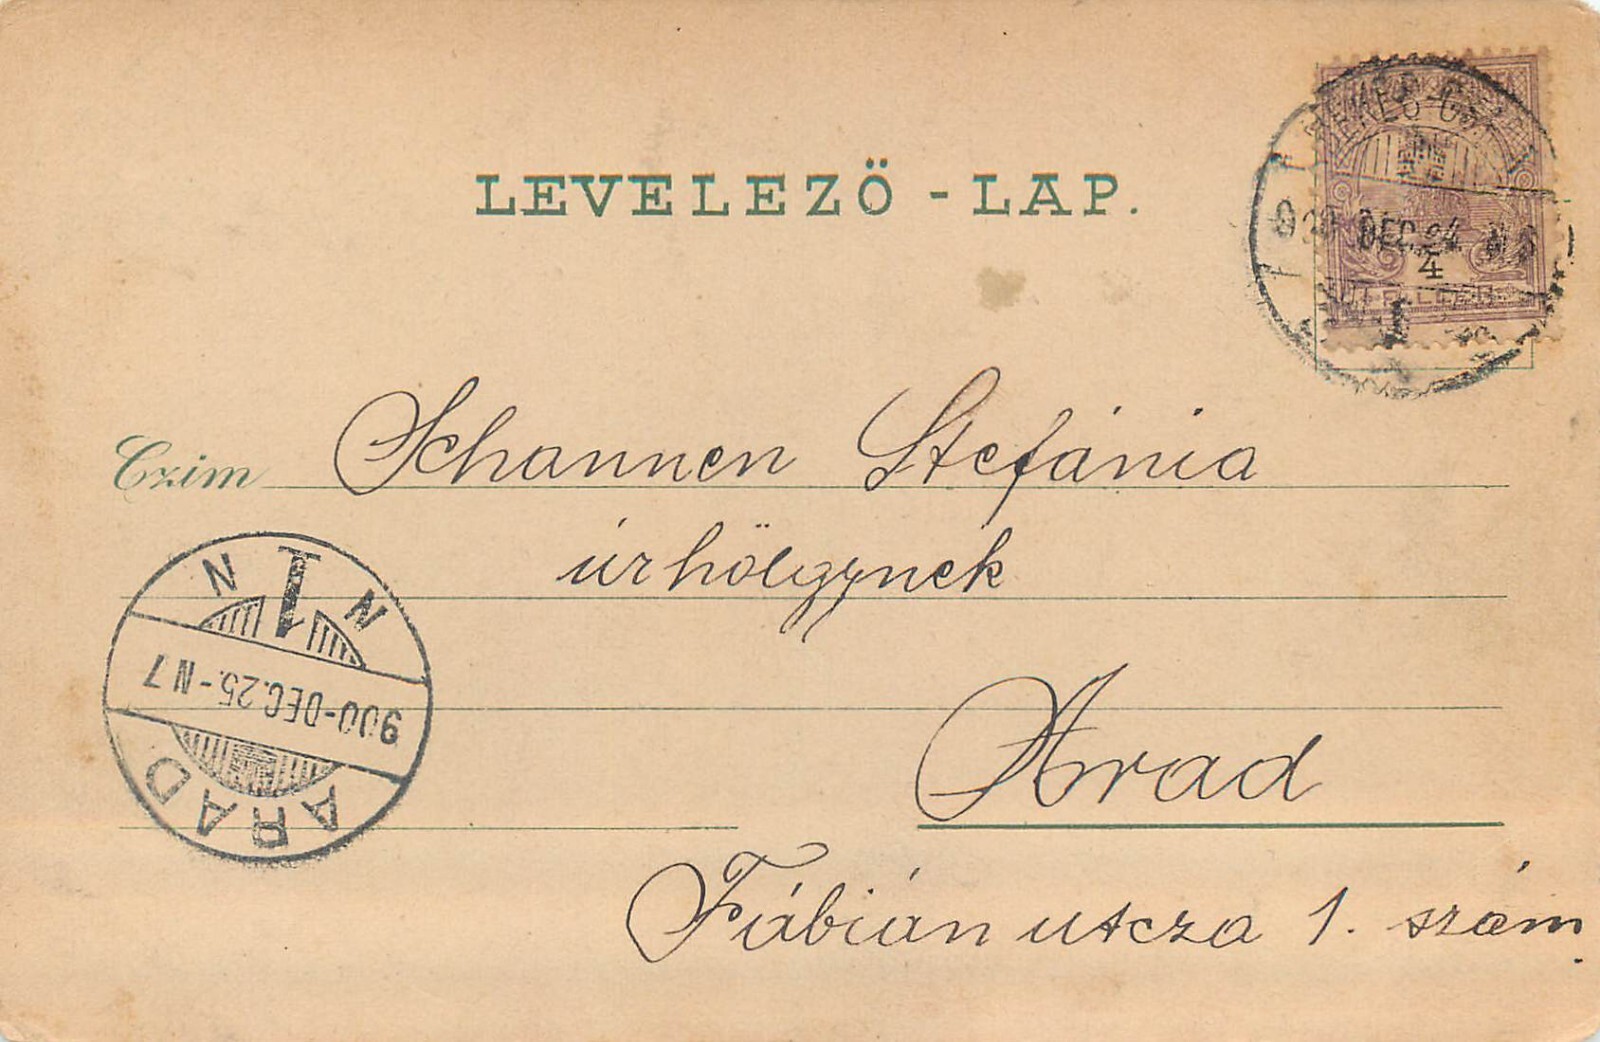 LEVELEZŐ - LAP.
900 DEC. 24. N 6
4
FILLÉR
Czim Schannen Stefánia
úrhölgynek
Arad
Fábián utcza 1. szám.
N 1 N
900-DEC.25.-N7
ARAD